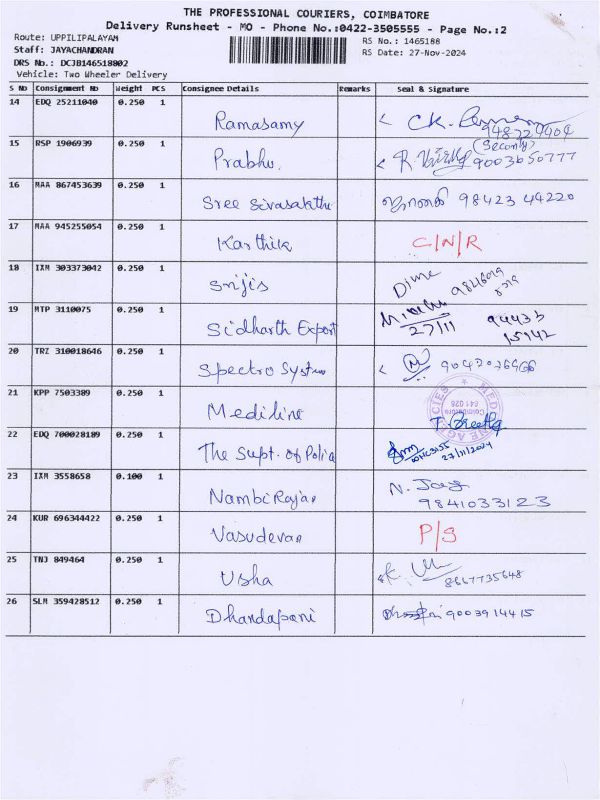 THE PROFESSIONAL COURIERS, COIMBATORE
Delivery Runsheet - MO - Phone No.:0422-3505555 - Page No.:2
Route: UPPILIPALAYAM
RS No.: 1465188
Staff: JAYACHANDRAN
RS Date: 27-Nov-2024
DRS No.: DCJB146518802
Vehicle: Two Wheeler Delivery
S No Consignment No Weight PCS Consignee Details Remarks Seal & Signature
14 EDQ 25211040 0.250 1 Ramasamy CK.
15 RSP 1906939 0.250 1 Prabhu. R. (Security) 9003650777
16 MAA 867453639 0.250 1 Sree Sivasakthi 98423 44220
17 MAA 945255054 0.250 1 Karthik C/N/R
18 IXM 303373042 0.250 1 Srijis
19 MTP 3110075 0.250 1 Sidharth Export 27/11 94436 15142
20 TRZ 310018646 0.250 1 Spectro System
21 KPP 7503389 0.250 1 Mediline MEDILINE AGENCIES Coimbatore 641 028
22 EDQ 700028189 0.250 1 The Supt. of Polic 27/11/2024
23 IXM 3558658 0.100 1 Nambi Rajan N. Jay 9841033123
24 KUR 696344422 0.250 1 Vasudevan P/S
25 TNJ 849464 0.250 1 Usha 8667735648
26 SLM 359428512 0.250 1 Dhandapani 9003914415